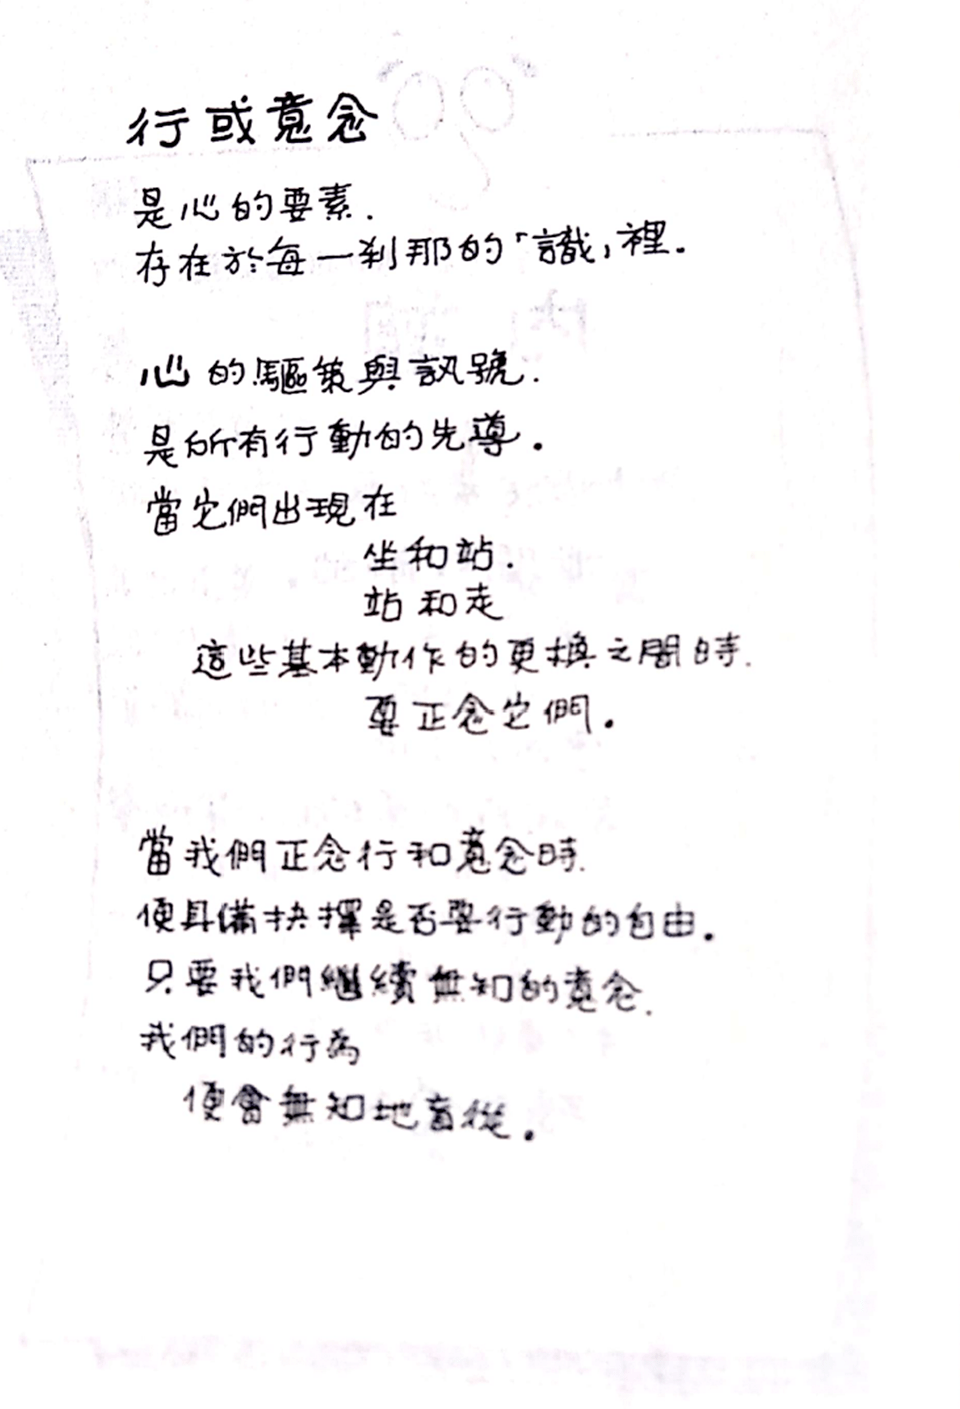 行或意念
是心的要素.
存在於每一刹那的「識」裡.
心的驅策與訊號.
是所有行動的先導。
當它們出現在
坐和站.
站和走
這些基本動作的更換之間時.
要正念它們。
當我們正念行和意念時.
便具備抉擇是否要行動的自由。
只要我們繼續無知的意念.
我們的行為
便會無知地盲從。